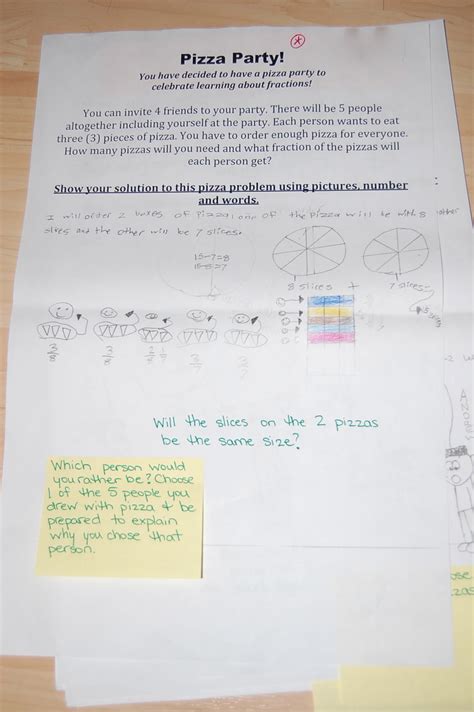 Pizza Party!
You have decided to have a pizza party to
celebrate learning about fractions!
You can invite 4 friends to your party. There will be 5 people
altogether including yourself at the party. Each person wants to eat
three (3) pieces of pizza. You have to order enough pizza for everyone.
How many pizzas will you need and what fraction of the pizzas will
each person get?
Show your solution to this pizza problem using pictures, number
and words.
I will order 2 boxes of Pizza, one of the pizza will be with 8
slices and the other will be 7 slices.
15-7=8
15-8=7
8 slices + 7 slices
3/8 3/8
Will the slices on the 2 pizzas
be the same size?
Which person would
you rather be? Choose
1 of the 5 people you
drew with pizza & be
prepared to explain
why you chose that
person.